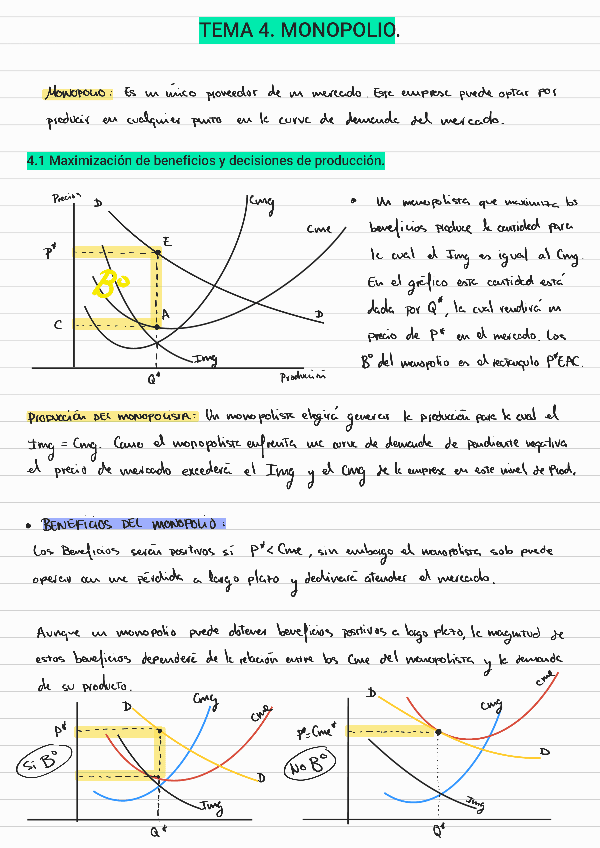 TEMA 4. MONOPOLIO.
MONOPOLIO: Es un único proveedor de un mercado. Este empresa puede optar por
producir en cualquier punto en la curva de demanda del mercado.
4.1 Maximización de beneficios y decisiones de producción.
Precios
D
Cmg
Cme
P*
E
B°
C
A
D
Img
Q*
Producción
• Un monopolista que maximiza los
beneficios produce la cantidad para
la cual el Img es igual al Cmg.
En el gráfico esta cantidad está
dada por Q*, la cual rendirá un
precio de P* en el mercado. Los
B° del monopolio es el rectángulo P*EAC.
PRODUCCIÓN DEL MONOPOLISTA: Un monopolista elegirá generar la producción para la cual el
Img = Cmg. Como el monopolista enfrenta una curva de demanda de pendiente negativa
el precio de mercado excederá el Img y el Cmg de la empresa en este nivel de Prod.
• BENEFICIOS DEL MONOPOLIO:
Los Beneficios serán positivos si P* < Cme, sin embargo el monopolista solo puede
operar con una pérdida a largo plazo y declinará atender el mercado.
Aunque un monopolio puede obtener beneficios positivos a largo plazo, la magnitud de
estos beneficios dependerá de la relación entre los Cme del monopolista y la demanda
de su producto.
D
Cmg
Cme
P*
Sí B°
D
Img
Q*
D
Cmg
Cme
P*=Cme*
No B°
D
Img
Q*